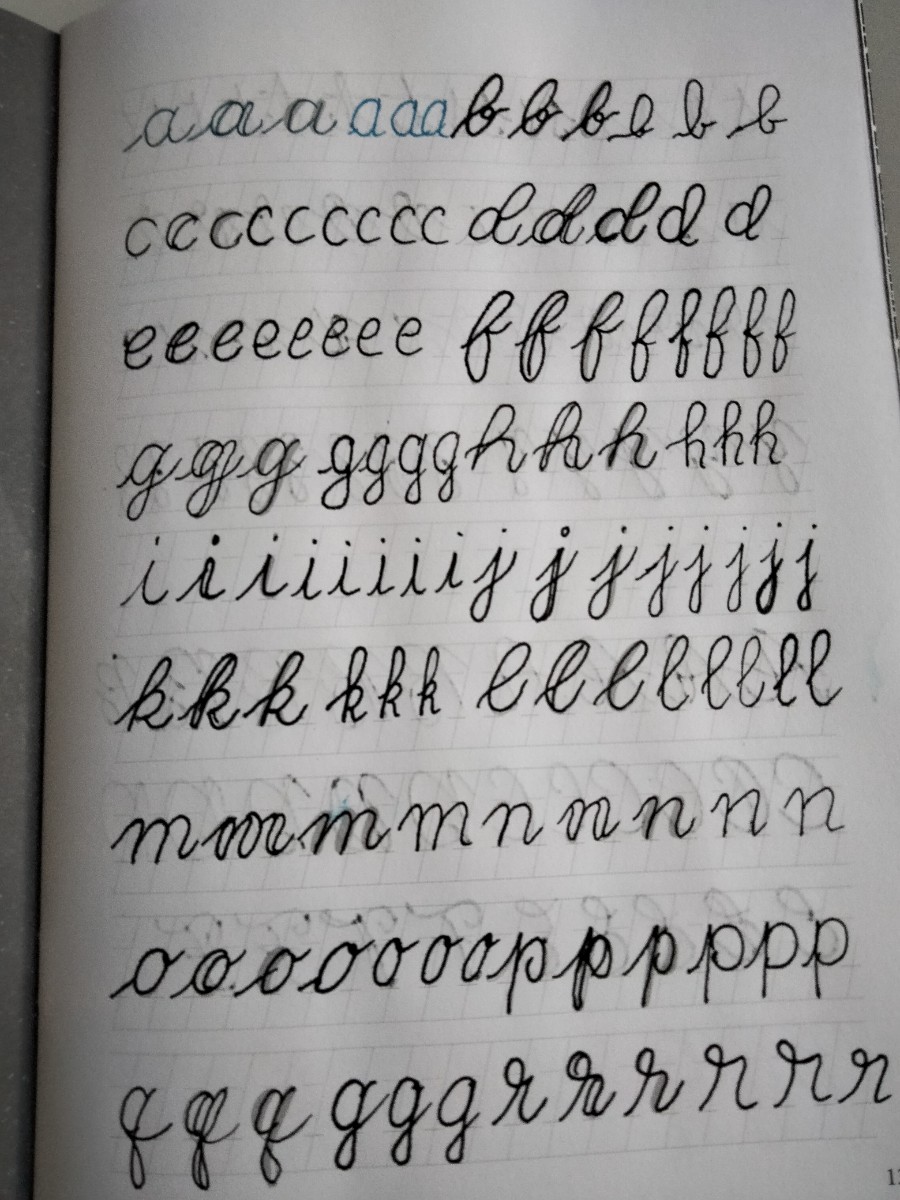 a a a a a a b b b b b b
c c c c c c c c c d d d d d
e e e e e e e e f f f f f f f f
g g g g g g g h h h h h h
i i i i i i i i j j j j j j j j
k k k k k k l l l l l l l l
m m m m n n n n n
o o o o o o o p p p p p p
q q q g g g r r r r r r